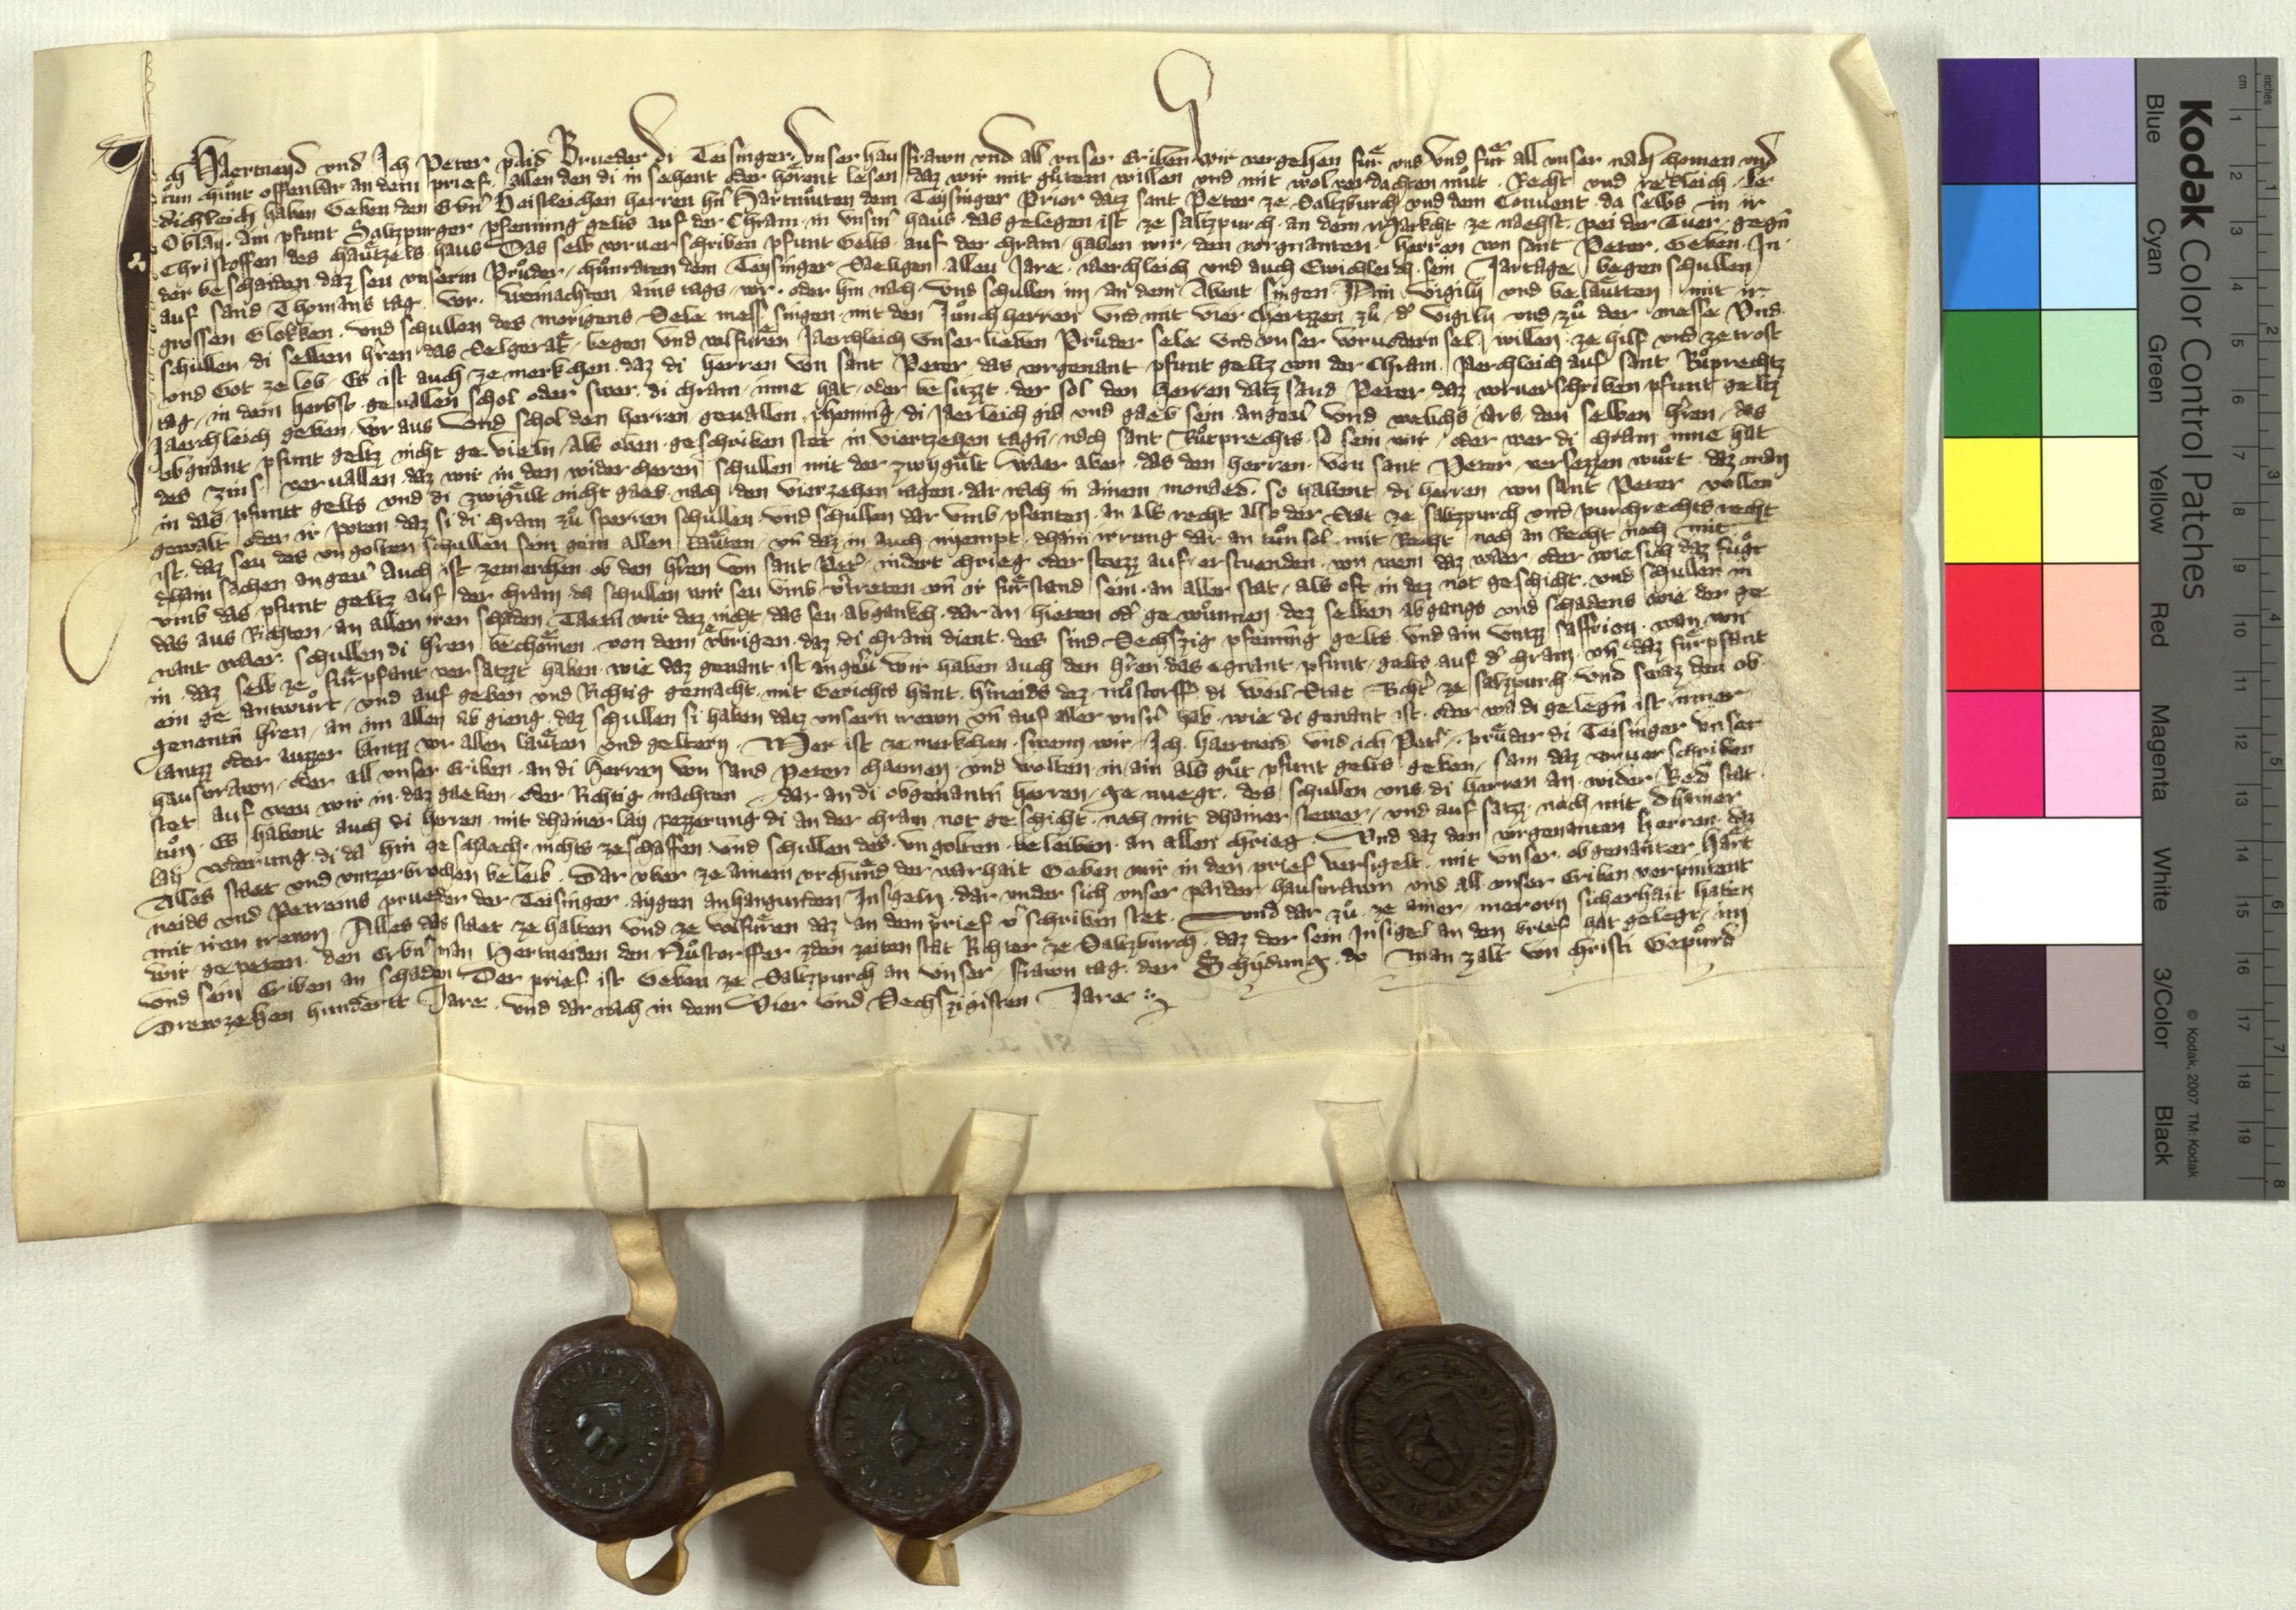 Ich Haertneyd vnd Ich Peter paid Brueder di Teisinger vnser hausfrawn vnd all vnser Eriben wir vergehen für vns vnd für all vnser nach chomen vnd
tůn chůnt offenbar an dem prief allen den di in sehent oder hörent lesen daz wir mit gůtem willen vnd mit wol verdachten můt Recht vnd redleich le
dichleich haben Geben den Geistleichen herren hern Hartmůten dem Teysinger Prior datz sant Peter ze Saltzburch vnd dem Conuent da selbs in ir
Oblay ain pfunt Saltzpurger pfenning gelts auf der Chram in vnserm haus das gelegen ist ze saltzpurch an dem Markcht ze naehst pei der Tuer gegn
Christoffen des haůtzels haus Das selb vorverschriben pfunt Gelts auf der chram haben wir den vorgnanten herren von sant Peter Geben In
der beschaiden daz seu vnserm Průder chůnraten dem Teysinger Saeligen allew Jare Jaerchleich vnd auch Ewichleich sein Jartage begen schullen
auf sand Thomans tag vor weinachten ains tags vor oder hin nach vnd schullen im an dem Abent singen Ain vigilij vnd belaůtten mit ir
grossen Glokken vnd schullen des morigens Sele mess singen mit den Junchherren vnd mit vier chertzzen zů der vigilij vnd zů der messe Vnd
schullen di selben herren das Selgeraet begen vnd volfüren Jaerchleich vnser lieben Průder sele vnd vnser voruodern sel willen ze hilf vnd ze trost
vnd Got ze lob Es ist auch ze merkchen daz di herren von sant Peter das vorgenant pfunt geltz von der Chram Jaerchleich auf sant Růprechtz
tag in dem herbst geuallen schol oder swer di chram inne hat oder besitzzt der sol den herren datz sand Peter daz voruerschriben pfunt geltz
Jaerchleich geben vor aus vnd schol den herren geuallen phening di Jaerleich gib vnd gaeb sein angeuer vnd welichs iars den selben herren das
obgnant pfunt geltz nicht geuieln als oben geschriben stet in viertzehen tagen nach sant Růprechts so sein wir oder wer di chram inne hat
des zins veruallen daz wir in den wider cheren schullen mit der zwygült waer aber das den herren von sant Peter versezzen wurt daz man
in das pfuntt gelts vnd di zwigült nicht gaeb nach den vierzehen tagen dar nach in ainem monaed so habent di herren von sant Peter vollen
gewalt oder ir poten daz si di chram zů sperren schullen vnd schullen dar vmb pfenten an als recht als der Stat ze saltzpurch vnd purchrechts recht
ist daz seu des vngolten schullen sein gein allen laüten vnd daz in auch nyempt dhain irrung dar an tůn sol mit Recht noch an Recht noch mit
dhain sachen angeuer Auch ist zemerchen ob den herren von sant Peter indert chrieg oder stozz auf erstuenden von wem daz waer oder wie sich daz fügt
vmb das pfunt geltz auf der chram da schullen wir seu vmb vertreten vnd ir fürstand sein an aller stat als oft in dez not geschicht vnd schullen in
das aus Richten an allen iren schaden Taetn wir dez nicht das seu abgankch dar an hieten oder gewünnen dez selben abgangs vnd schadens wie der ge
nant waer schullen di herren bechömen von dem übrigen daz di chram dient des sind Sechszig pfenning gelts vnd ain vntz saffrion wan wir
in daz selb ze fürpfant versatzzt haben wie daz genant ist angeuer wir haben auch den herren das egnant pfunt gelts auf der chram vnd daz fürpfant
ein geantwürt vnd auf geben vnd Richtig gemacht mit Gerichts hant herneids dez nůstorffer di weil Stat Richter ze salzpurch vnd swaz den ob
genenten herren an im allen ab gieng daz schullen si haben datz vnsern trewn vnd auf aller vnsrer hab wie di genant ist oder wa di gelegen ist inner
lantzz oder auzzer lantzz vor allen laüten vnd gelterrn Mer ist ze merkchen swenn wir Ich haertneid vnd ich Peter průder di Teisinger vnser
hausvrawn oder all vnser Eriben an di herren von sand Peter chaemen vnd wolten in ain als gůt pfunt gelts geben sam daz voruerschriben
stet auf wew wir in daz gaeben oder Richtig machten dar an di obgenanten herren genuegt des schullen vns di herren an wider Red stat
tůn Es habent auch di herren mit dhainerlay pezzerung di an der chram not geschicht noch mit dhainer stewer vnd auf satz noch mit dhainer
lay voderung di da hin geschaech nichts ze schaffen vnd schullen des vngolten beleiben an allen chrieg Vnd daz den vorgenanten herren daz
Alles staet vnd vntzerbrochen beleib Dar vber ze ainem vrchund der warhait Geben wir in den prief versigelt mit vnser obgenanter Hart
neids vnd Petreins prueder der Teisinger aygen anhangunden Insigeln dar vnder sich vnser paider hausvrawn vnd all vnser Eriben verpintent
mit iren trewn Alles das staet ze halten vnd ze volfüren daz an dem prief verschriben stet vnd dar zů ze ainer merorn sicherhait haben
wir gepeten den Erbern man Hertneiden den Nůstorffer zden zeiten stat Richter ze Saltzburch daz der sein Insigel an den brief hat gelegt im
vnd sein Eriben an schaden Der prief ist Geben ze Saltzpurch an vnser frawn tag der Schydung do man zalt von Christi Gepürd
Drewzehen hundertt Jare vnd dar nach in dem Vier vnd Sechszigisten Jare
Kodak Color Control Patches
Blue Cyan Green Yellow Red Magenta White 3/Color Black
© Kodak, 2007 TM: Kodak
cm 1 2 3 4 5 6 7 8 9 10 11 12 13 14 15 16 17 18 19
inches 1 2 3 4 5 6 7 8